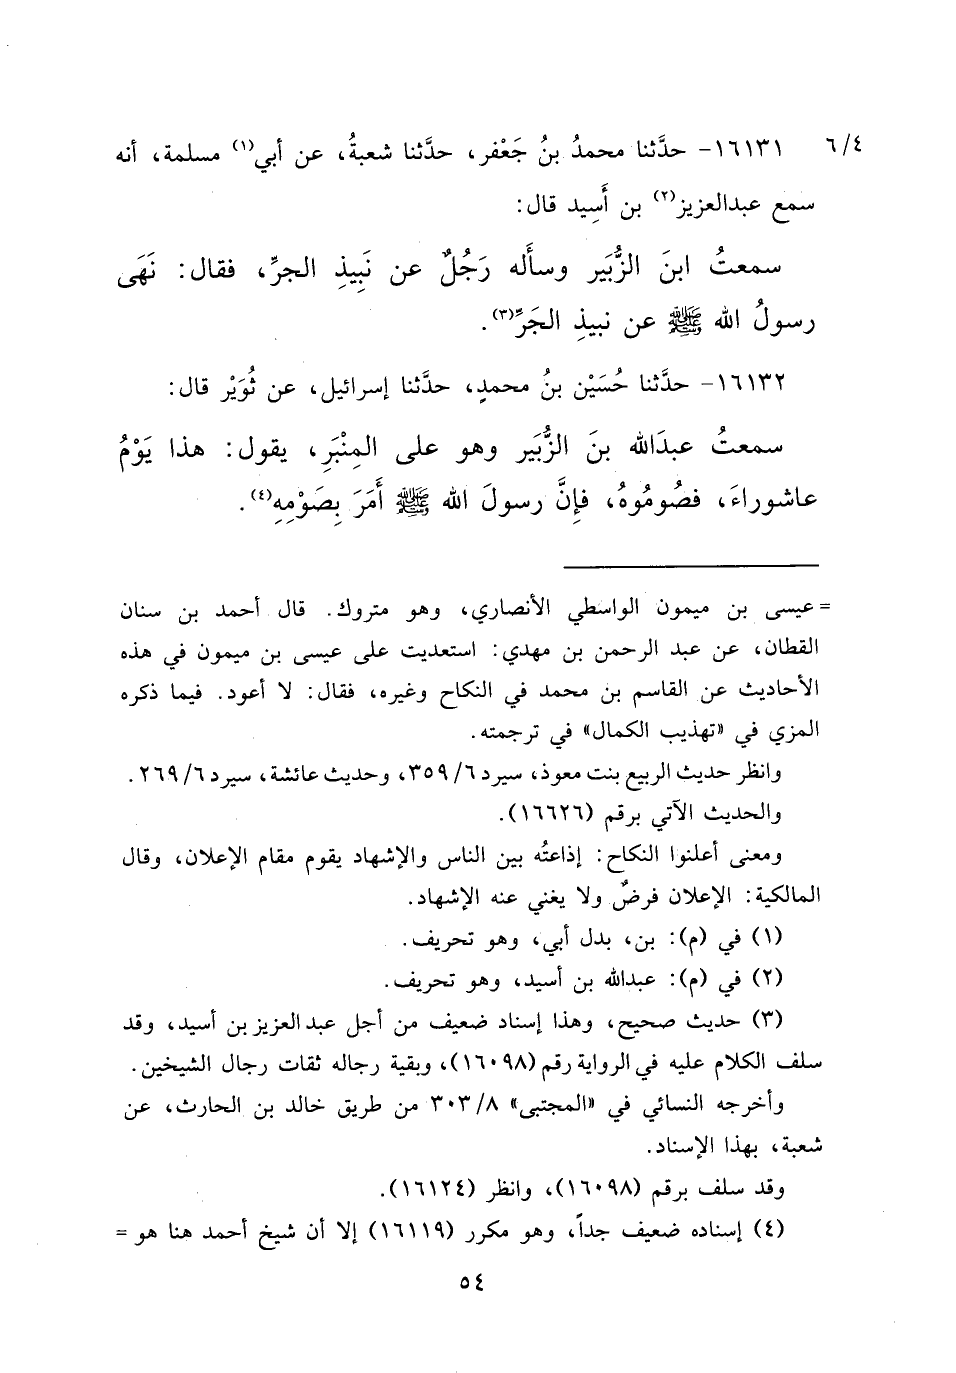 ٦/٤ ١٦١٣١- حدَّثنا محمدُ بنُ جَعْفر، حدَّثنا شعبةُ، عن أبي(١) مسلمة، أنه
سمع عبدالعزيز(٢) بن أَسِيد قال:
سمعتُ ابنَ الزُّبَير وسأله رَجُلٌ عن نَبِيذِ الجرِّ، فقال: نَهَى
رسولُ الله ﷺ عن نبيذِ الجَرِّ(٣).
١٦١٣٢- حدَّثنا حُسَيْن بنُ محمدٍ، حدَّثنا إسرائيل، عن ثُوَيْر قال:
سمعتُ عبدَالله بنَ الزُّبَير وهو على المِنْبَرِ، يقول: هذا يَوْمُ
عاشوراءَ، فصُومُوهُ، فإِنَّ رسولَ الله ﷺ أَمَرَ بِصَوْمِهِ(٤).
= عيسى بن ميمون الواسطي الأنصاري، وهو متروك. قال أحمد بن سنان
القطان، عن عبد الرحمن بن مهدي: استعديت على عيسى بن ميمون في هذه
الأحاديث عن القاسم بن محمد في النكاح وغيره، فقال: لا أعود. فيما ذكره
المزي في «تهذيب الكمال» في ترجمته.
وانظر حديث الربيع بنت معوذ، سيرد ٣٥٩/٦، وحديث عائشة، سيرد ٢٦٩/٦.
والحديث الآتي برقم (١٦٦٢٦).
ومعنى أعلنوا النكاح: إذاعتُه بين الناس والإشهاد يقوم مقام الإعلان، وقال
المالكية: الإعلان فرضٌ ولا يغني عنه الإشهاد.
(١) في (م): بن، بدل أبي، وهو تحريف.
(٢) في (م): عبدالله بن أسيد، وهو تحريف.
(٣) حديث صحيح، وهذا إسناد ضعيف من أجل عبد العزيز بن أسيد، وقد
سلف الكلام عليه في الرواية رقم (١٦٠٩٨)، وبقية رجاله ثقات رجال الشيخين.
وأخرجه النسائي في «المجتبى» ٣٠٣/٨ من طريق خالد بن الحارث، عن
شعبة، بهذا الإسناد.
وقد سلف برقم (١٦٠٩٨)، وانظر (١٦١٢٤).
(٤) إسناده ضعيف جداً، وهو مكرر (١٦١١٩) إلا أن شيخ أحمد هنا هو =
٥٤